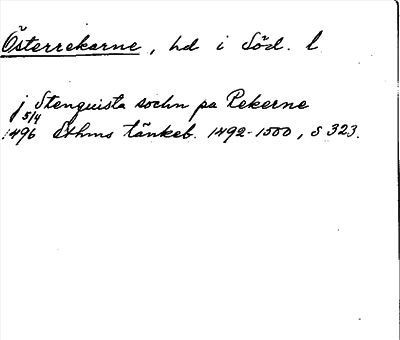 Österrekarne, hd i Söd. l.
j Stenquista sochn pa Rekerne
5/4
1496 Sthms tänkeb. 1492-1500, s 323.